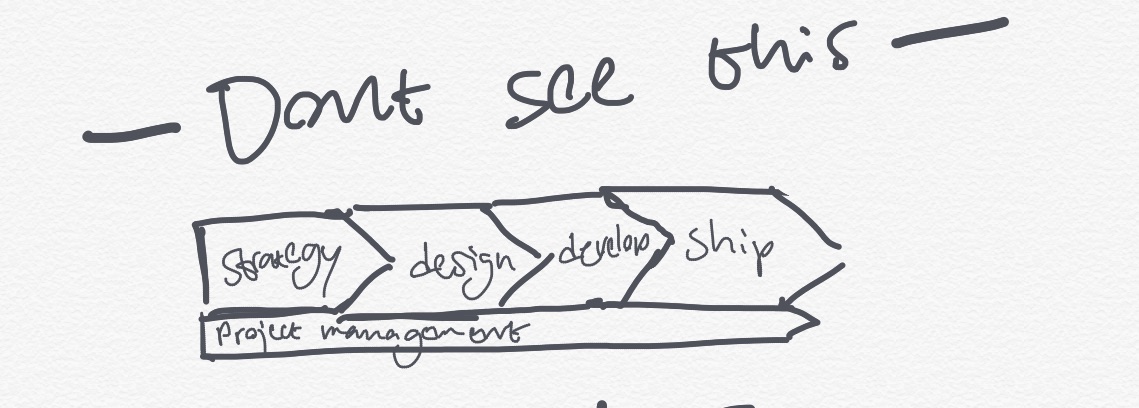 Dont see this
strategy design develop ship
Project management